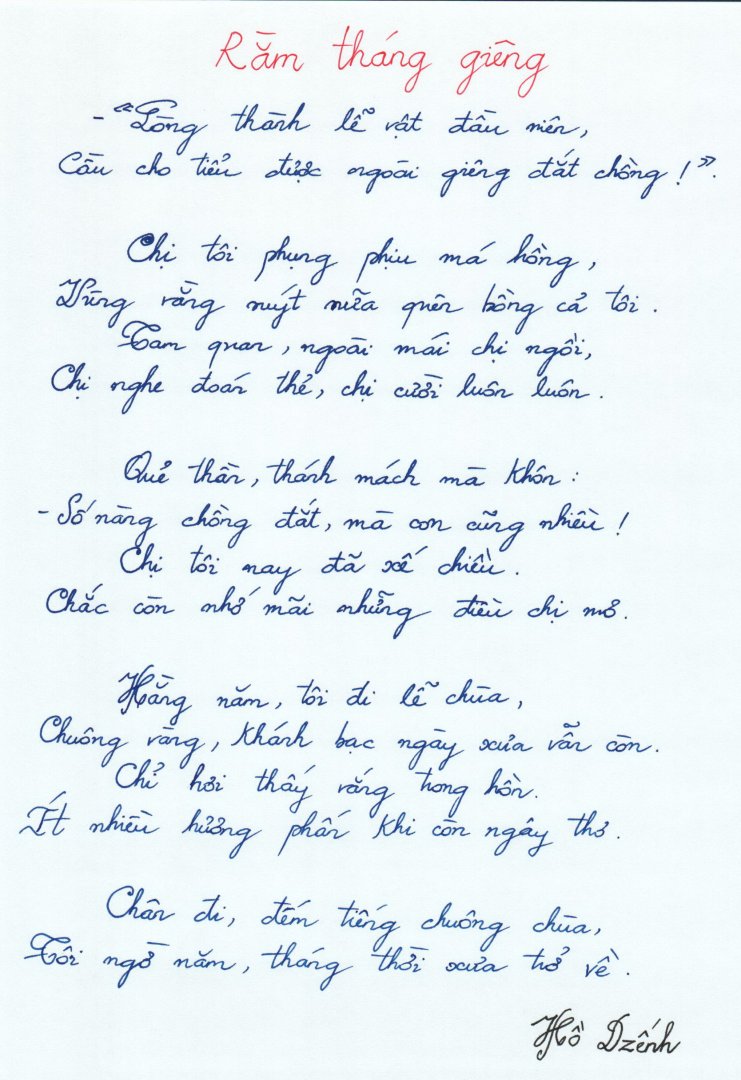 Rằm tháng giêng
- "Lòng thành lễ vật đầu niên,
Cầu cho tiểu được ngoài giêng đắt chồng!".
Chị tôi phụng phịu má hồng,
Vùng vằng suýt nữa quên bồng cả tôi.
Tam quan, ngoài mái chị ngồi,
Chị nghe đoán thẻ, chị cười luôn luôn.
Quẻ thần, thánh mách mà khôn:
- Số nàng chồng đắt, mà con cũng nhiều!
Chị tôi nay đã xế chiều.
Chắc còn nhớ mãi những điều chị mơ.
Hằng năm, tôi đi lễ chùa,
Chuông vàng, khánh bạc ngày xưa vẫn còn.
Chỉ hơi thấy vắng trong hồn.
Ít nhiều hương phấn khi còn ngây thơ.
Chân đi, đếm tiếng chuông chùa,
Tôi ngỡ năm, tháng thời xưa trở về.
Hồ Dzếnh